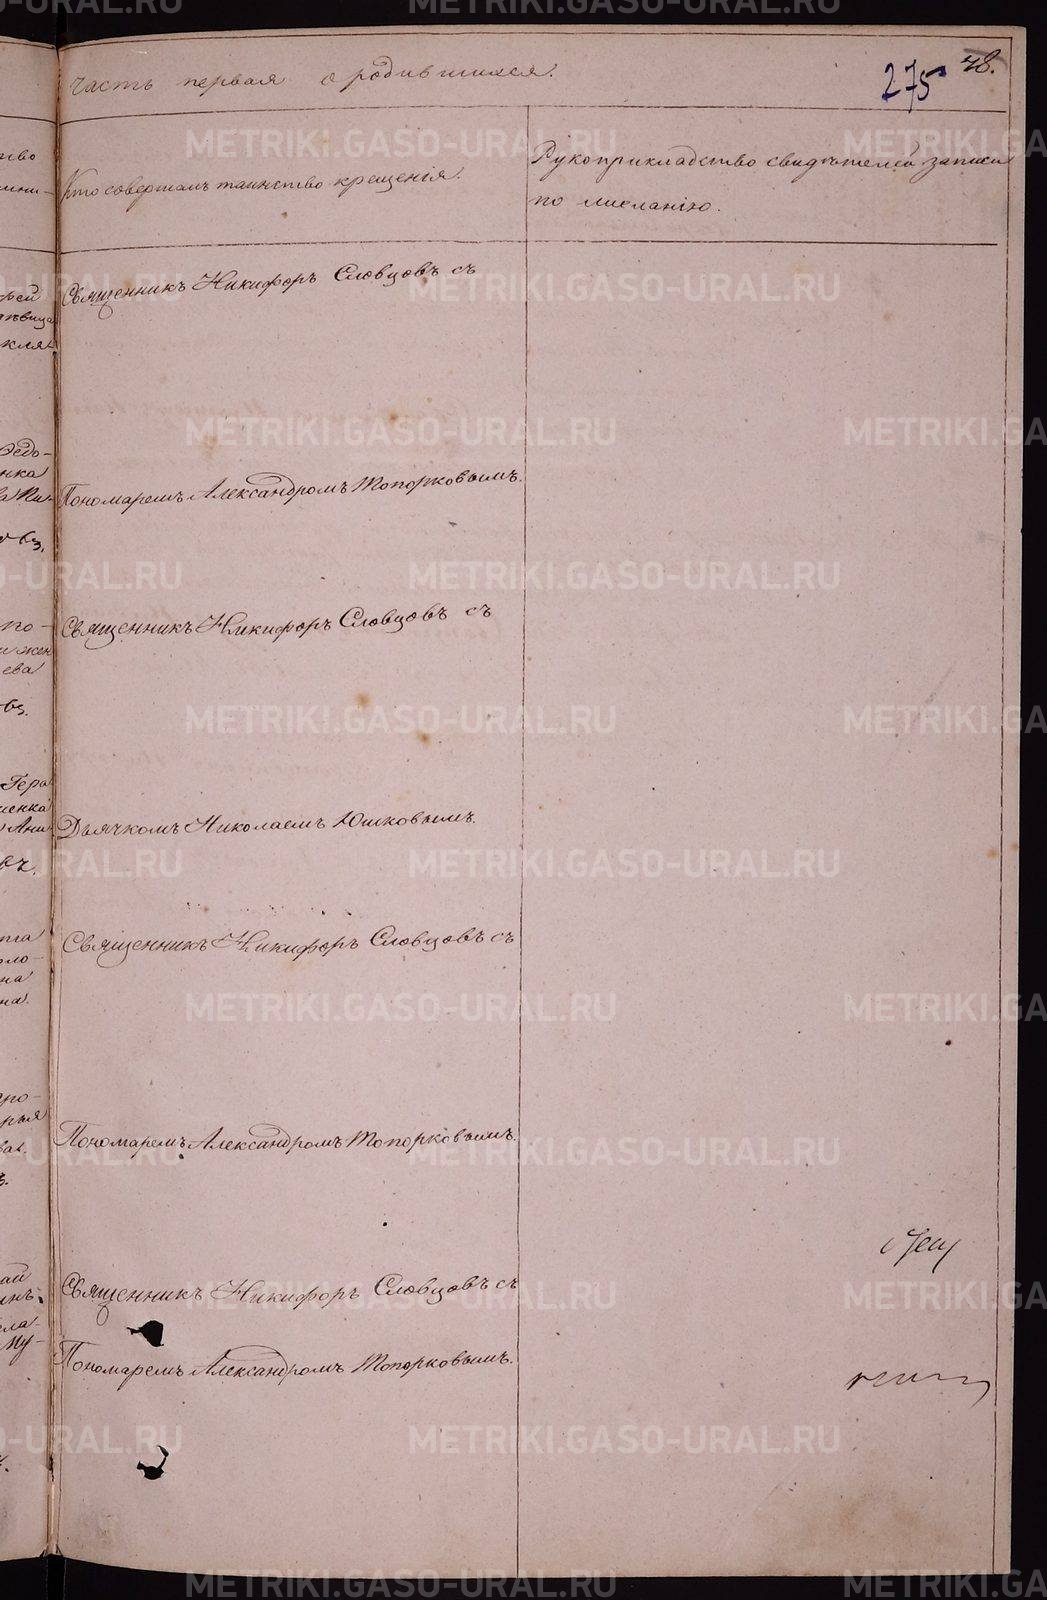 часть первая о родившихся.
275
48.
Кто совершалъ таинство крещенія.
Рукоприкладство свидѣтелей записи
по желанію.
Священникъ Никифоръ Словцовъ съ
Пономаремъ Александромъ Топорковымъ.
Священникъ Никифоръ Словцовъ съ
Дьячкомъ Николаемъ Юшковымъ.
Священникъ Никифоръ Словцовъ съ
Пономаремъ Александромъ Топорковымъ.
Священникъ Никифоръ Словцовъ съ
Пономаремъ Александромъ Топорковымъ.
METRIKI.GASO-URAL.RU